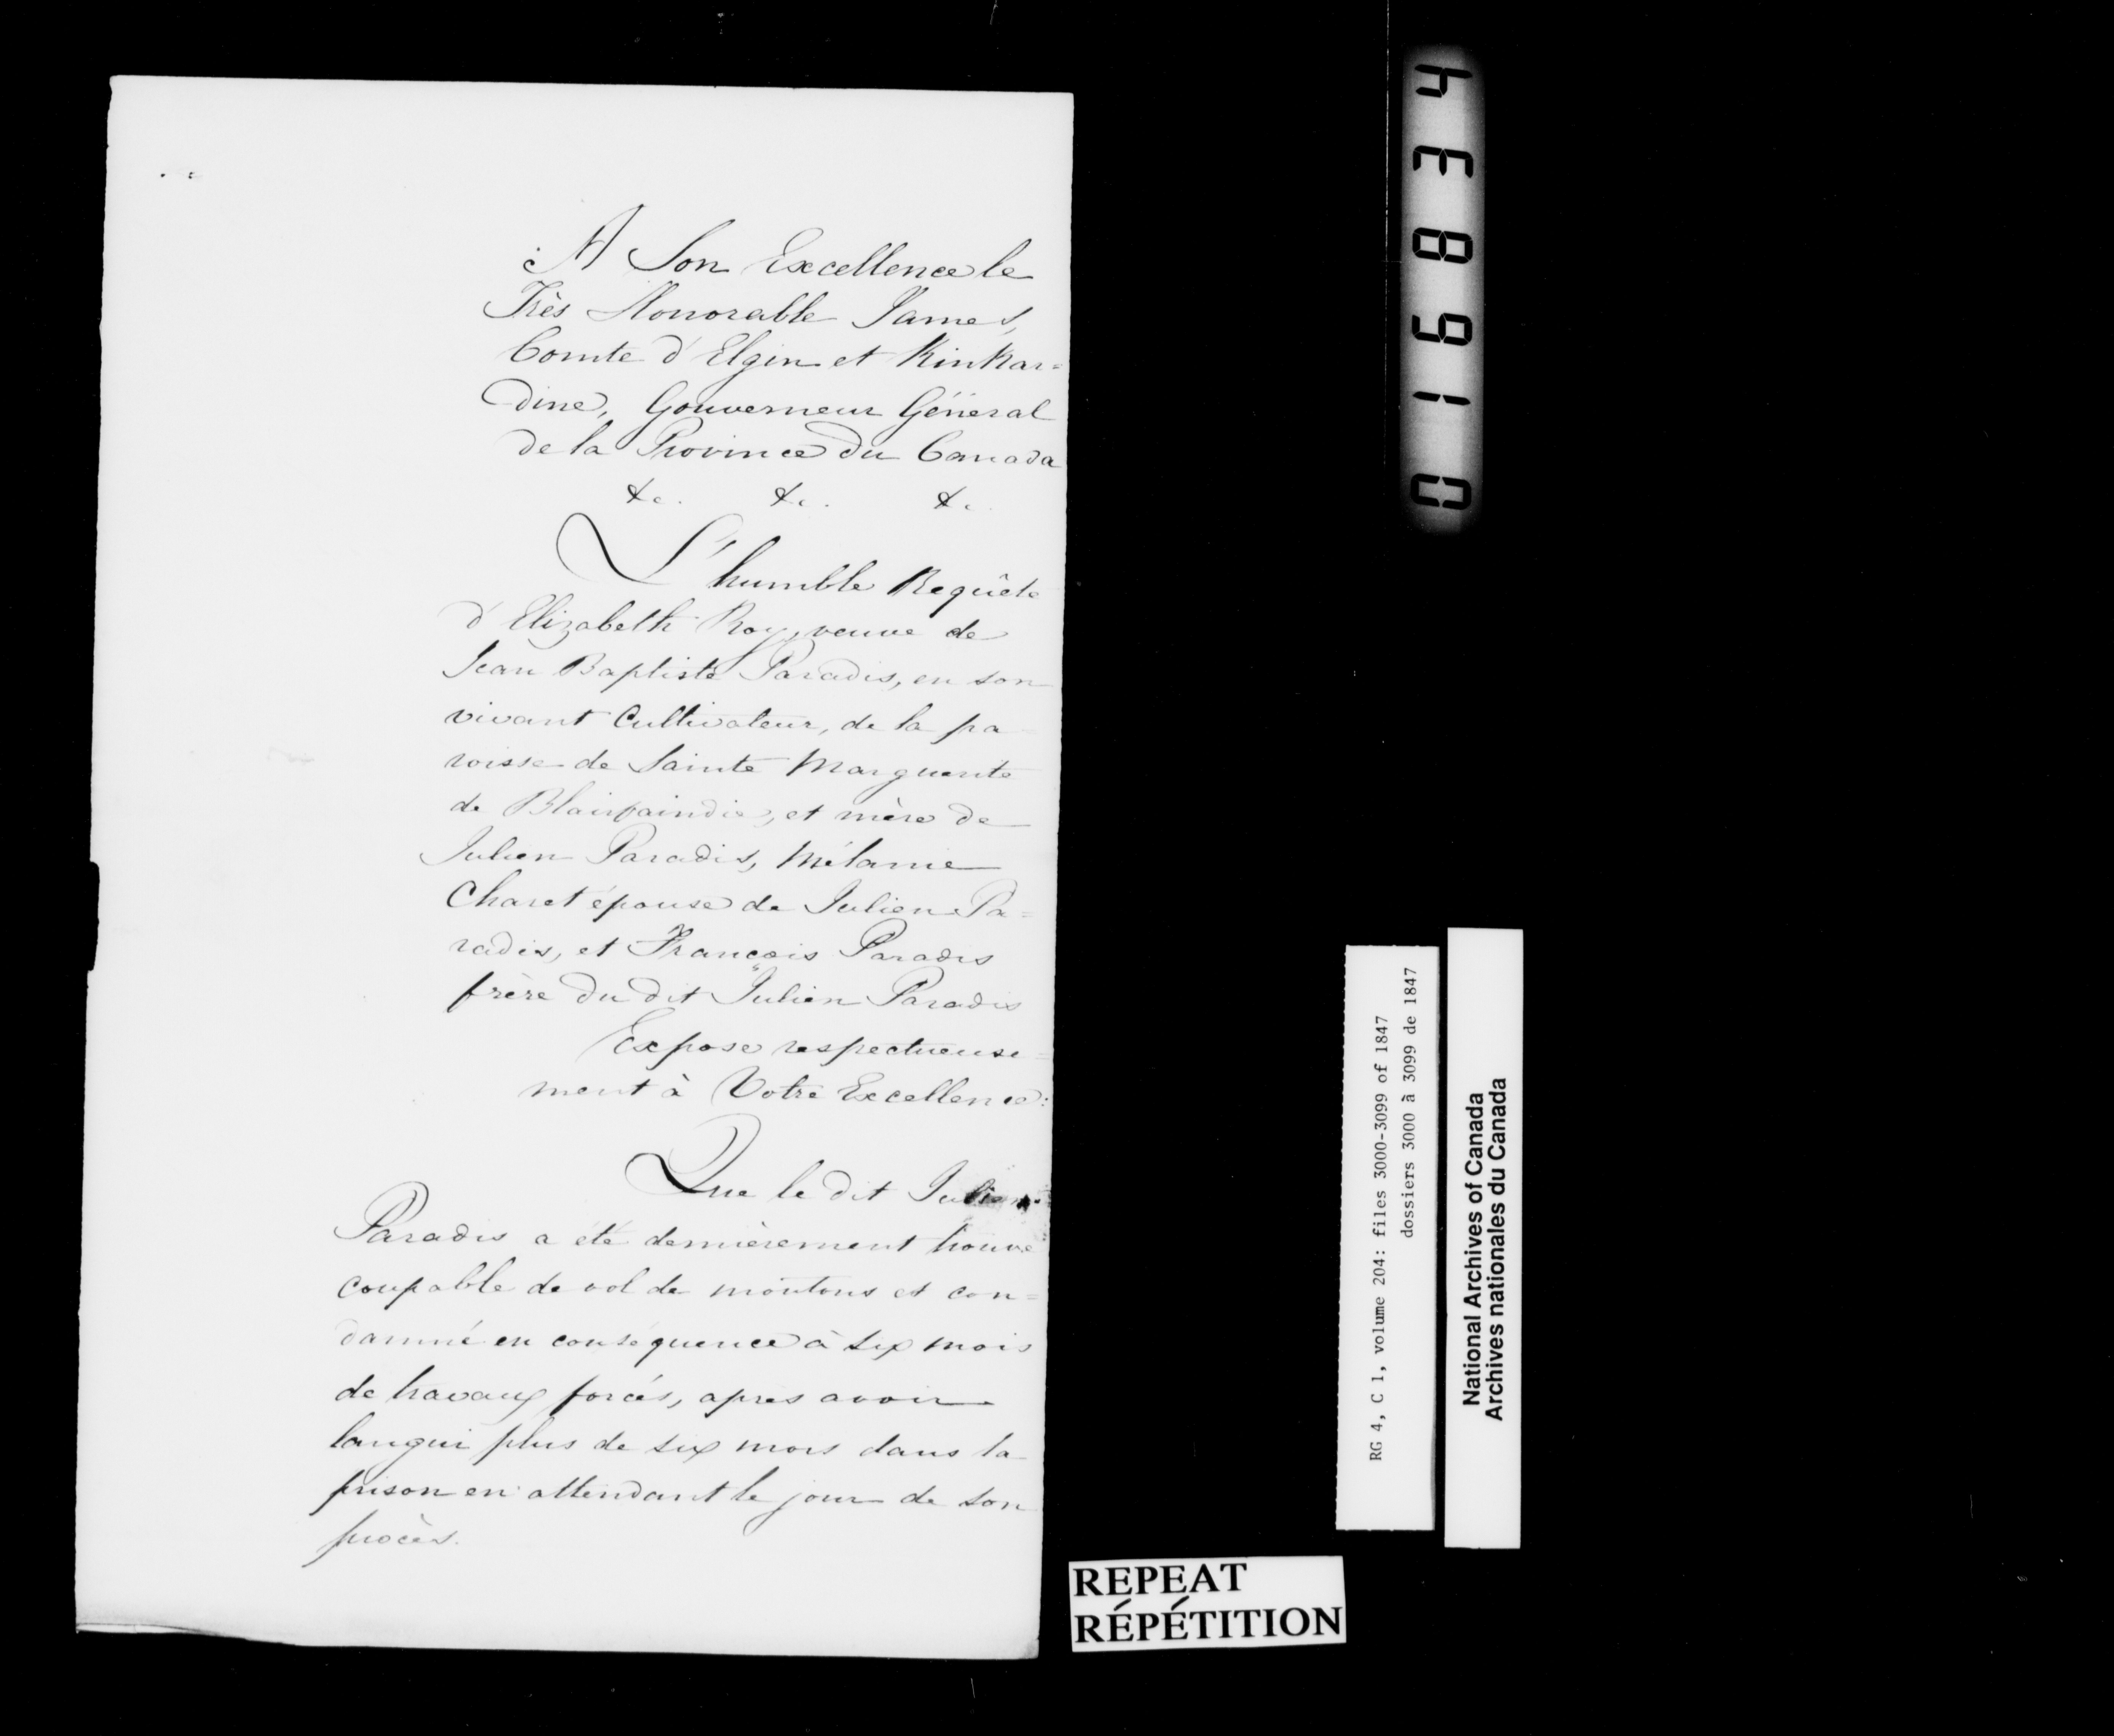 A Son Excellence le
Très Honorable James,
Comte d'Elgin et Kinkar=
dine, Gouverneur Général
de la Province du Canada
&c. &c. &c
L'humble Requête
d'Elizabeth Roy, veuve de
Jean Baptiste Paradis, en son
vivant Cultivateur, de la pa
roisse de Sainte Marguerite
de Blairfaindie, et mère de
Julien Paradis, Mélanie
Charet épouse de Julien Pa=
radis, et François Paradis
frère du dit Julien Paradis
Expose respectueuse=
ment à Votre Excellence:
Que le dit Julien
Paradis a été dernièrement trouvé
coupable de vol de moutons et con=
damné en conséquence à six mois
de travaux forcés, après avoir
langui plus de six mois dans la
prison en attendant le jour de son
procès.
REPEAT
RÉPÉTITION
RG 4, C 1, volume 204: files 3000-3099 of 1847
dossiers 3000 à 3099 de 1847
National Archives of Canada
Archives nationales du Canada
019834